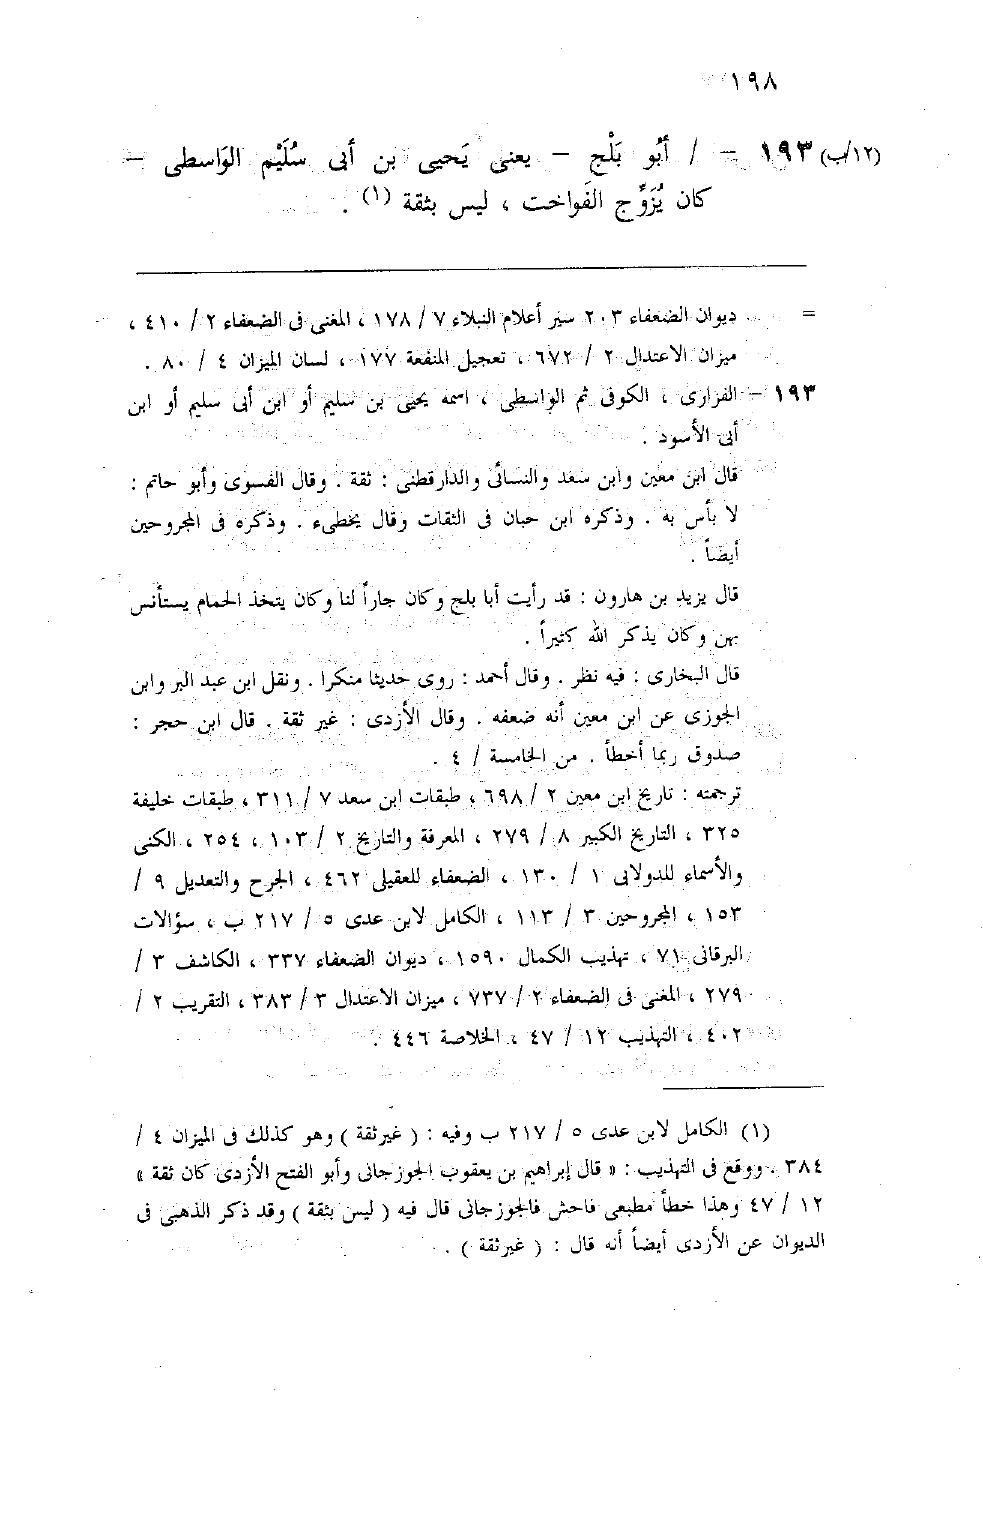 ١٩٨
(١٢/ب) ١٩٣ – / أَبُو بَلْجِ – يعنى يَحيى بن أبى سُلَيْم الوَاسطى –
كان يُزَوِّج الفَواخت ، ليس بثقة (١) .
= ديوان الضعفاء ٢٠٣ سير أعلام النبلاء ٧ / ١٧٨ ، المغنى فى الضعفاء ٢ / ٤١٠ ،
ميزان الاعتدال ٢ / ٦٧٢ ، تعجيل المنفعة ١٧٧ ، لسان الميزان ٤ / ٨٠ .
١٩٣ – الفزارى ، الكوفى ثم الواسطى ، اسمه يحيى بن سليم أو ابن أبى سليم أو ابن
أبى الأسود .
قال ابن معين وابن سعد والنسائى والدارقطنى : ثقة . وقال الفسوى وأبو حاتم :
لا بأس به . وذكره ابن حبان فى الثقات وقال يخطىء . وذكره فى المجروحين
أيضاً .
قال يزيد بن هارون : قد رأيت أبا بلج وكان جاراً لنا وكان يتخذ الحمام يستأنس
بهن وكان يذكر الله كثيراً .
قال البخارى : فيه نظر . وقال أحمد : روى حديثا منكرا . ونقل ابن عبد البر وابن
الجوزى عن ابن معين أنه ضعفه . وقال الأزدى : غير ثقة . قال ابن حجر :
صدوق ربما أخطأ . من الخامسة / ٤ .
ترجمته : تاريخ ابن معين ٢ / ٦٩٨ ، طبقات ابن سعد ٧ / ٣١١ ، طبقات خليفة
٣٢٥ ، التاريخ الكبير ٨ / ٢٧٩ ، المعرفة والتاريخ ٢ / ١٠٣ ، ٢٥٤ ، الكنى
والأسماء للدولابى ١ / ١٣٠ ، الضعفاء للعقيلى ٤٦٢ ، الجرح والتعديل ٩ /
١٥٣ ، المجروحين ٣ / ١١٣ ، الكامل لابن عدى ٥ / ٢١٧ ب ، سؤالات
البرقانى ٧١ ، تهذيب الكمال ١٥٩٠ ، ديوان الضعفاء ٣٣٧ ، الكاشف ٣ /
٢٧٩ ، المغنى فى الضعفاء ٢ / ٧٣٧ ، ميزان الاعتدال ٣ / ٣٨٣ ، التقريب ٢ /
٤٠٢ ، التهذيب ١٢ / ٤٧ ، الخلاصة ٤٤٦ .
(١) الكامل لابن عدى ٥ / ٢١٧ ب وفيه : ( غيرثقة ) وهو كذلك فى الميزان ٤ /
٣٨٤ ، ووقع فى التهذيب : « قال إبراهيم بن يعقوب الجوزجانى وأبو الفتح الأزدى كان ثقة »
١٢ / ٤٧ وهذا خطأ مطبعى فاحش فالجوزجانى قال فيه ( ليس بثقة ) وقد ذكر الذهبى فى
الديوان عن الأزدى أيضاً أنه قال : ( غيرثقة ) .